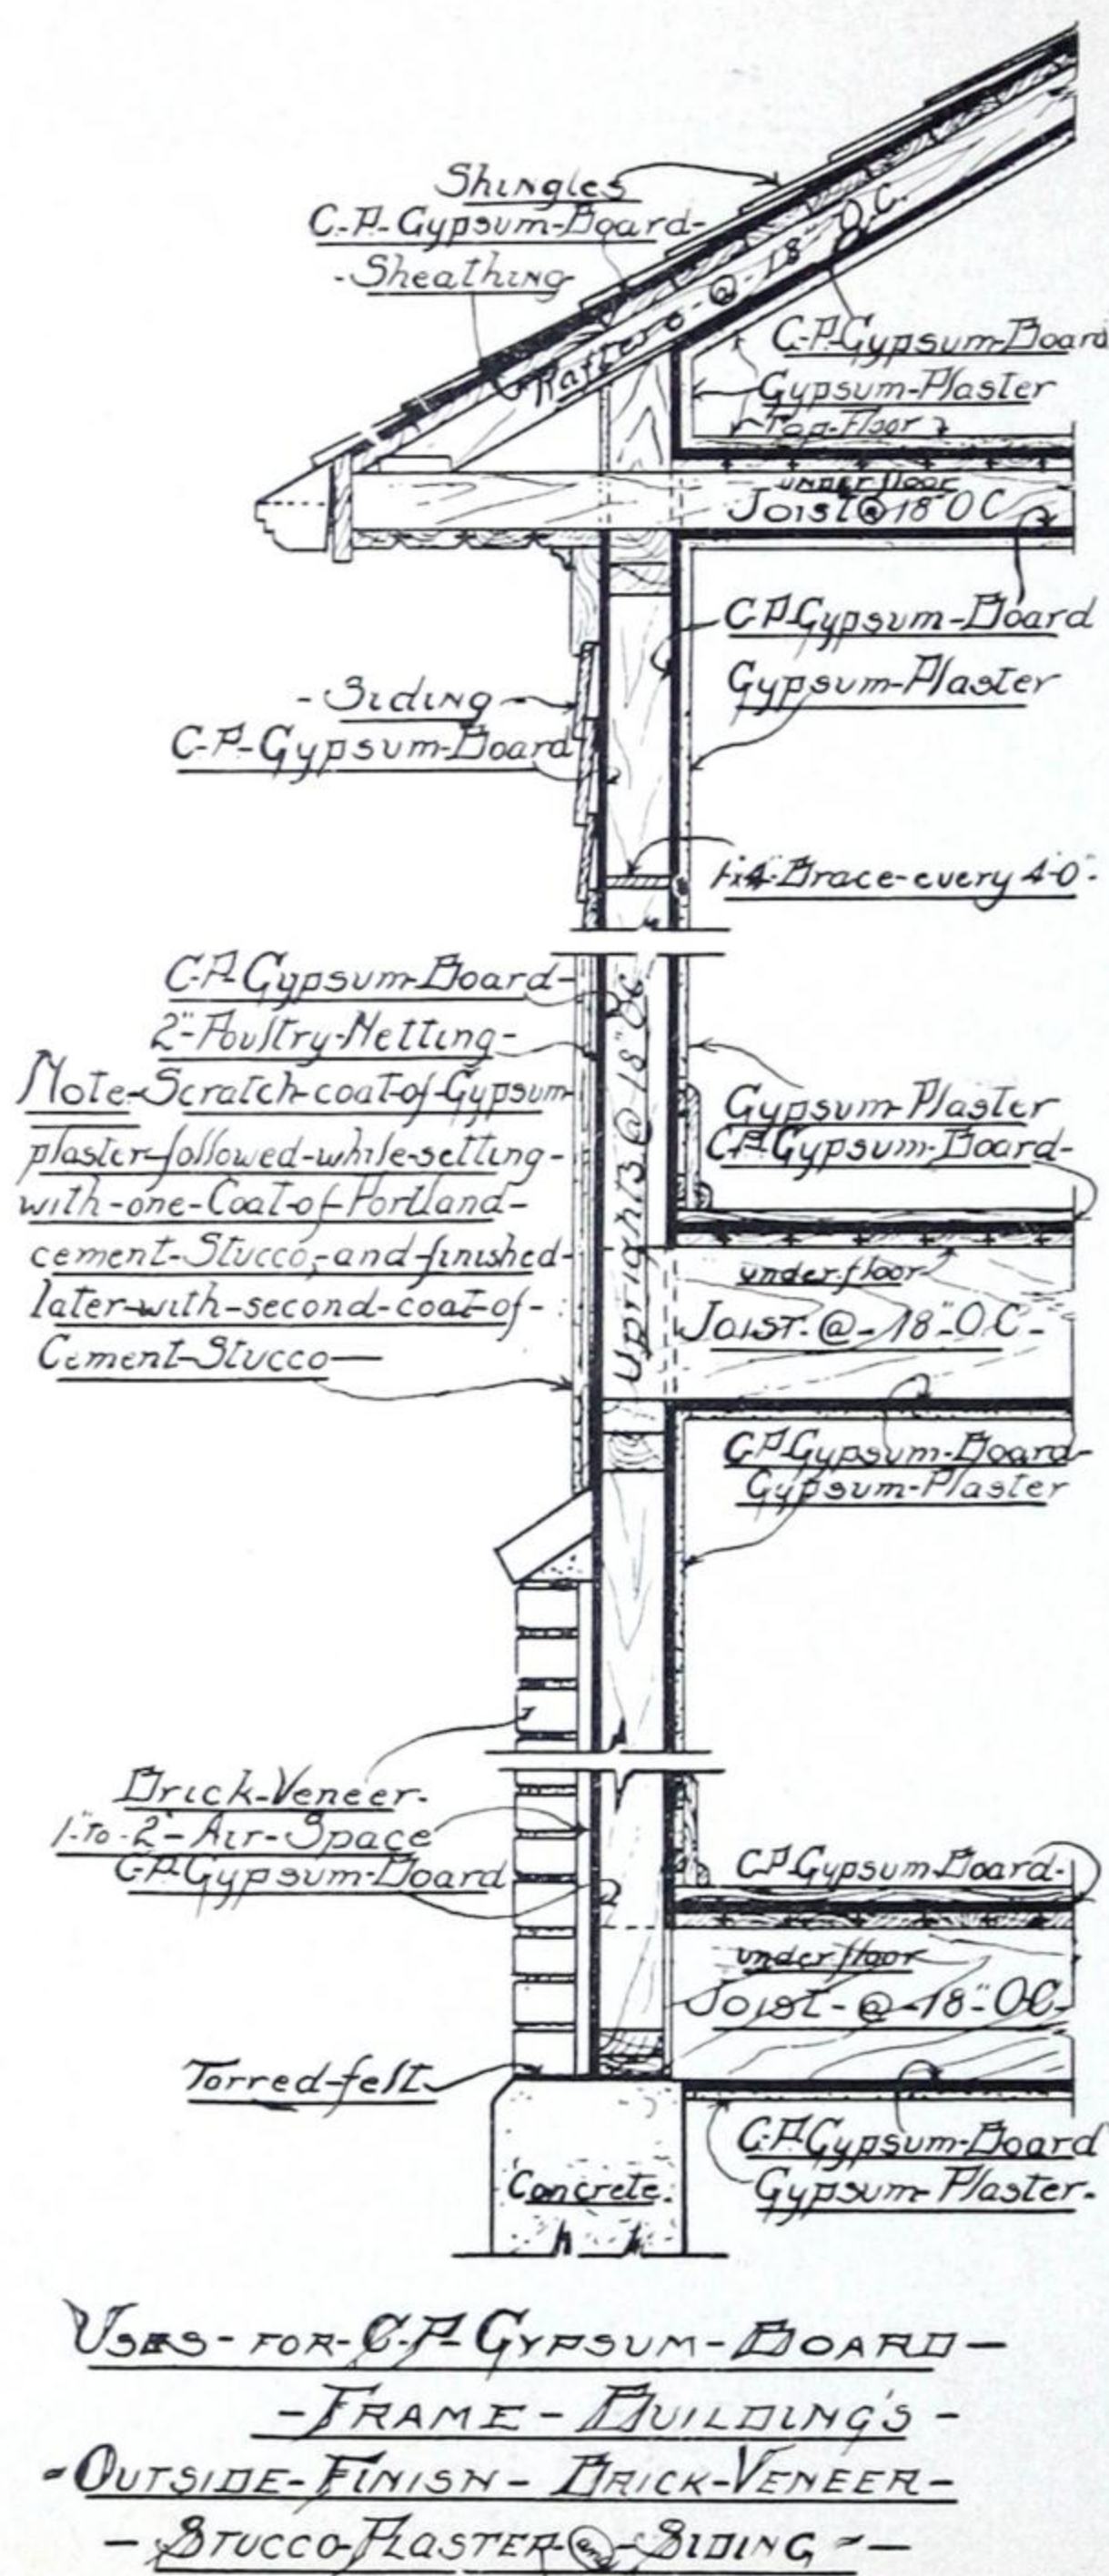 Shingles
C-P-Gypsum-Board-
-Sheathing
Rafters-@-18" O.C.
C-P-Gypsum-Board
Gypsum-Plaster
Top-Floor
under floor
Joist@18"OC
C-P-Gypsum-Board
Gypsum-Plaster
-Siding-
C-P-Gypsum-Board
1"x4"-Brace-every 4'-0"-
C-P-Gypsum-Board-
2"-Poultry-Netting-
Note-Scratch-coat-of-Gypsum-
plaster-followed-while-setting-
with-one-Coat-of-Portland-
cement-Stucco,-and-finished-
later-with-second-coat-of-
Cement-Stucco-
Uprights@18"OC
Gypsum-Plaster
C-P-Gypsum-Board-
under floor
Joist-@-18"-O.C.-
C-P-Gypsum-Board-
Gypsum-Plaster
Brick-Veneer-
1"-to-2"-Air-Space
C-P-Gypsum-Board
C-P-Gypsum-Board-
under floor
Joist-@-18"-O.C.-
Torred-felt
Concrete.
C-P-Gypsum-Board
Gypsum-Plaster-
Uses-for-C-P-Gypsum-Board-
-Frame-Building's-
-Outside-Finish-Brick-Veneer-
-Stucco-Plaster-and-Siding-